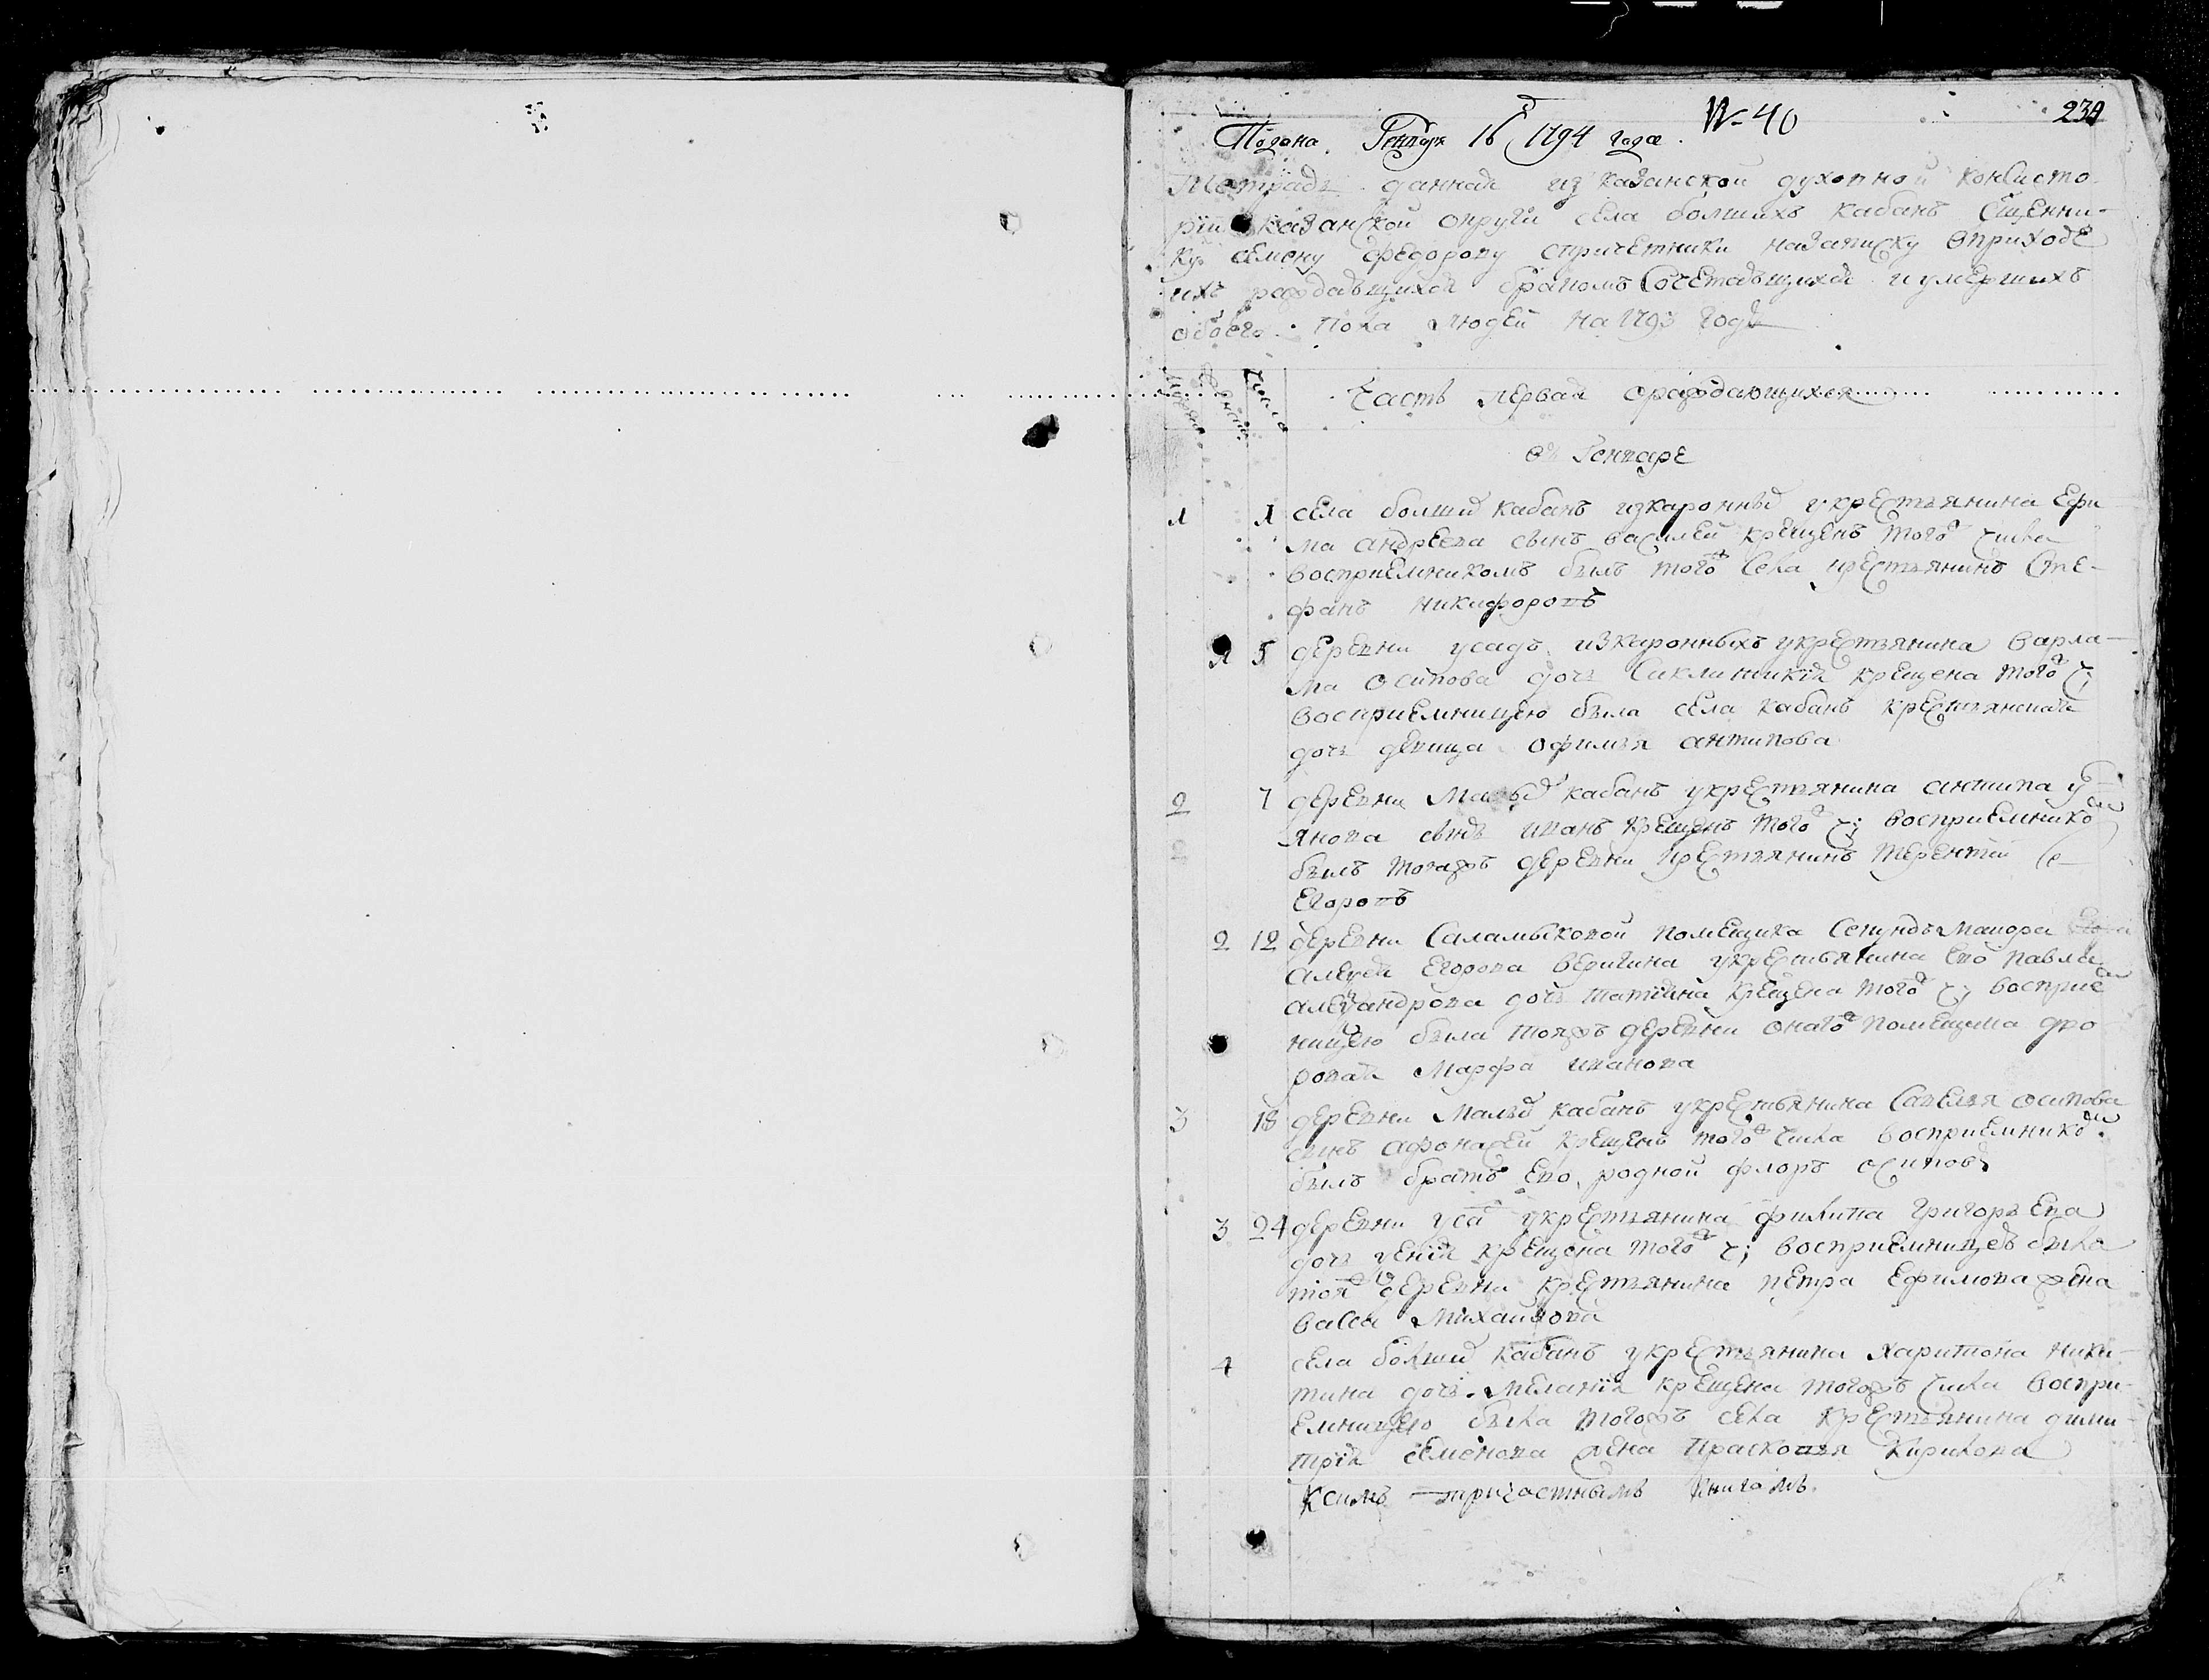 N-40
234
Подана Генваря 16 1794 года.
Тетрадь данная из казанской духовной консисто-
рии казанской округи села болшихъ кабанъ сщенни-
ку семену федорову спричетники назаписку вприходе
ихъ раждавшихся бракомъ сочетавшихся иумершихъ
обоего пола людей на 1793 годъ
числа
Часть первая ораждающихся
въ Генваре
1 1 села болши кабанъ изкаронны укрестьянина Ефи
ма андреева сынъ василей крещенъ того числа
восприемникомъ былъ того села крестьянинъ Сте-
фанъ никифоровъ
1 5 деревни усадъ изкаронныхъ укрестьянина варла-
ма осипова дочь Сиклитикия крещена того ч;
восприемницею была села кабанъ крестьянская
дочь девица офимья антипова
2 7 деревни Малы кабанъ укрестьянина антипа у
янова сынъ иванъ крещенъ того ч; восприемнико
былъ тояжъ деревни крестьянинъ терентей се-
Егоровъ
2 12 деревни Саламыковой помещика Секундъ Маиора
алексея Егорова веригина укрестьянина ево павла
александрова дочь татияна крещена того ч; восприе
ницею была тояжъ деревни онаго помещика дво
ровая Марфа иванова
3 18 деревни Малы кабанъ укрестьянина Савелья осипова
сынъ афонасей крещенъ того числа восприемнико
былъ братъ ево родной флоръ осиповъ
3 24 деревни уса укрестьянина филипа григорьева
дочь ксения крещена того ч; восприемницею была
тоя деревни крестьянина петра Ефимова жена
васса Михаилова
4 села болши кабанъ укрестьянина харитона ники-
тина дочь Мелания крещена тогожъ числа воспри-
емницею была тогожъ села крестьянина дими-
трия семенова жена Прасковья Кирилова
Ксимъ причастнымъ книгамъ